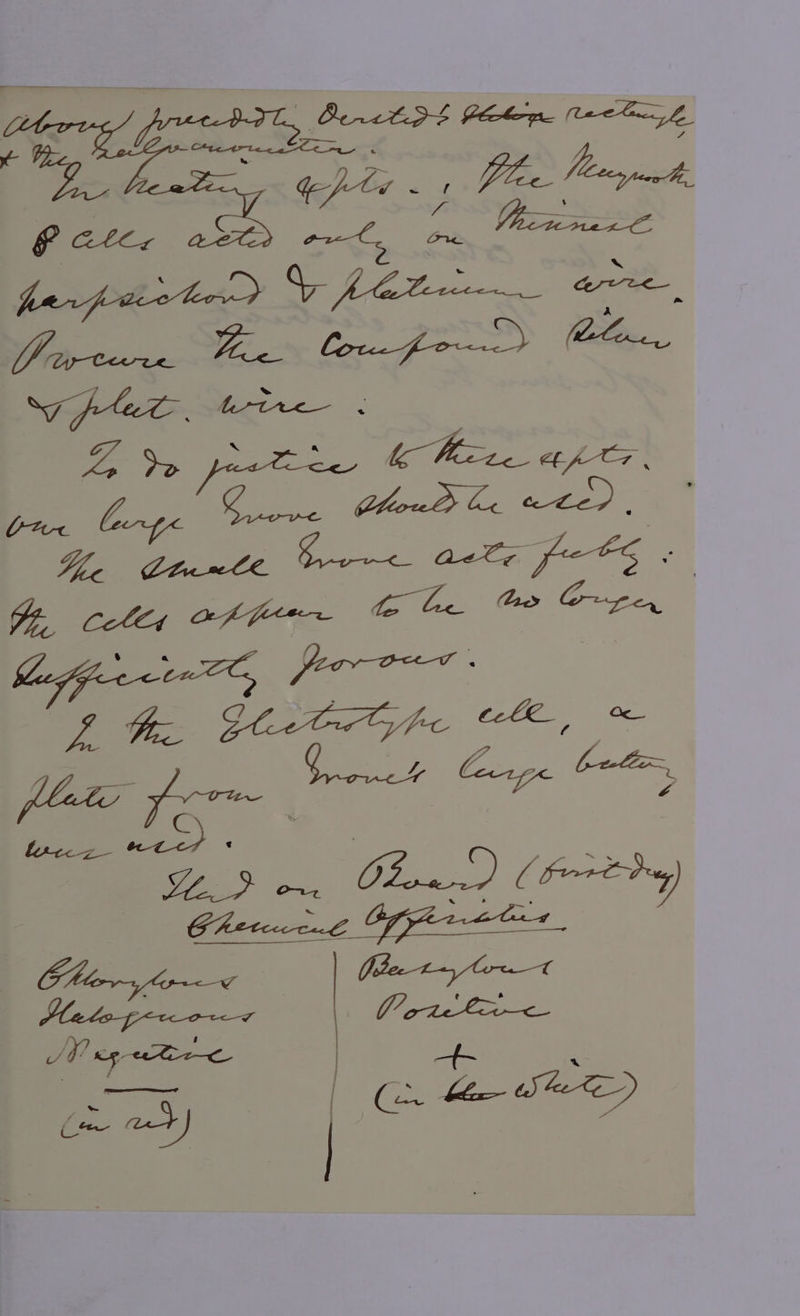 above/ precededly Oersted's Helix rectangle
& the
In heating expts., the Monmouth
8 cells acted only on thinnest
harpsichord & platinum wire.
Procure the Compound Silver
& plat. wire.
To do justice to these expts.
one large Grove should be used.
The small Grove acts feebly:
the cells appear to be no longer
sufficiently porous.
In the Electrotype cell, a
plate from Grove's large battery
was used.
Had on Board (first day)
Chemical Affinities
Chlorylous | Basylous
Halogenous | Positive
Negative | +
— | (in blue White)
(in red)